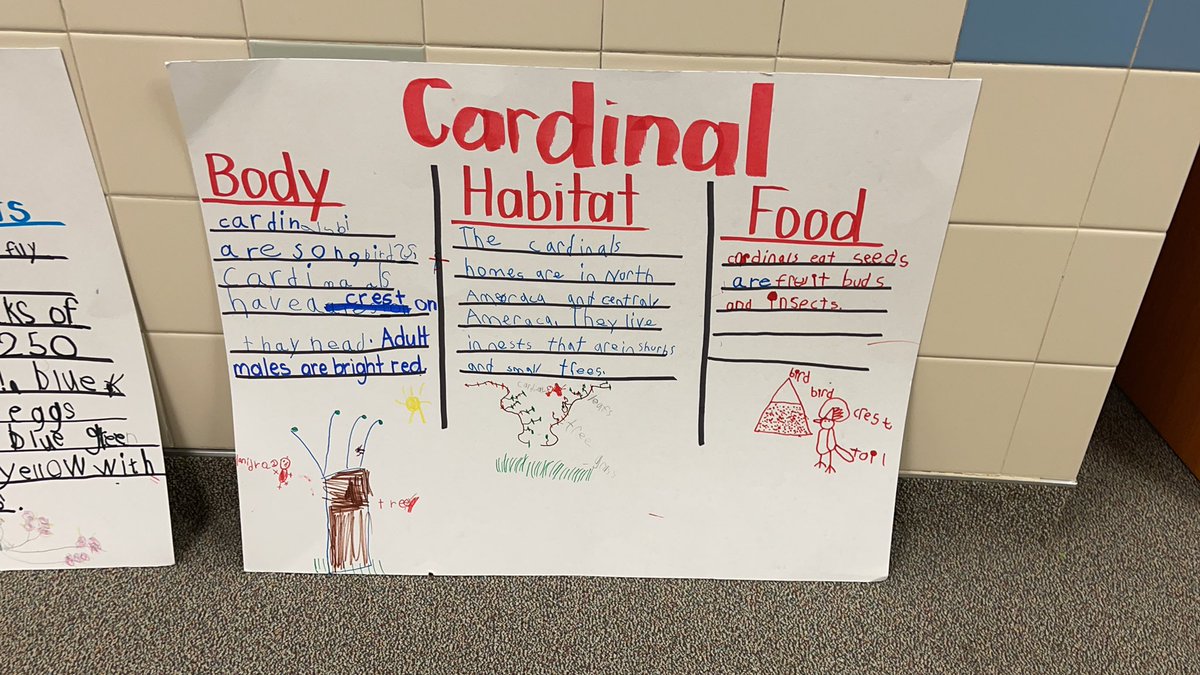 Cardinal
Body
cardinalsbi
are songbirds
Cardimals
have a crest on
thay head. Adult
males are bright red
tree
Habitat
The cardinals
homes are in North
Ameraca and central
Ameraca. They live
in nests that are in shurbs
and small trees.
tree
Food
cardinals eat seeds
are fruit buds
and insects.
bird
bird
crest
tail
fly
ks of
250
blue
eggs
blue green
yellow with